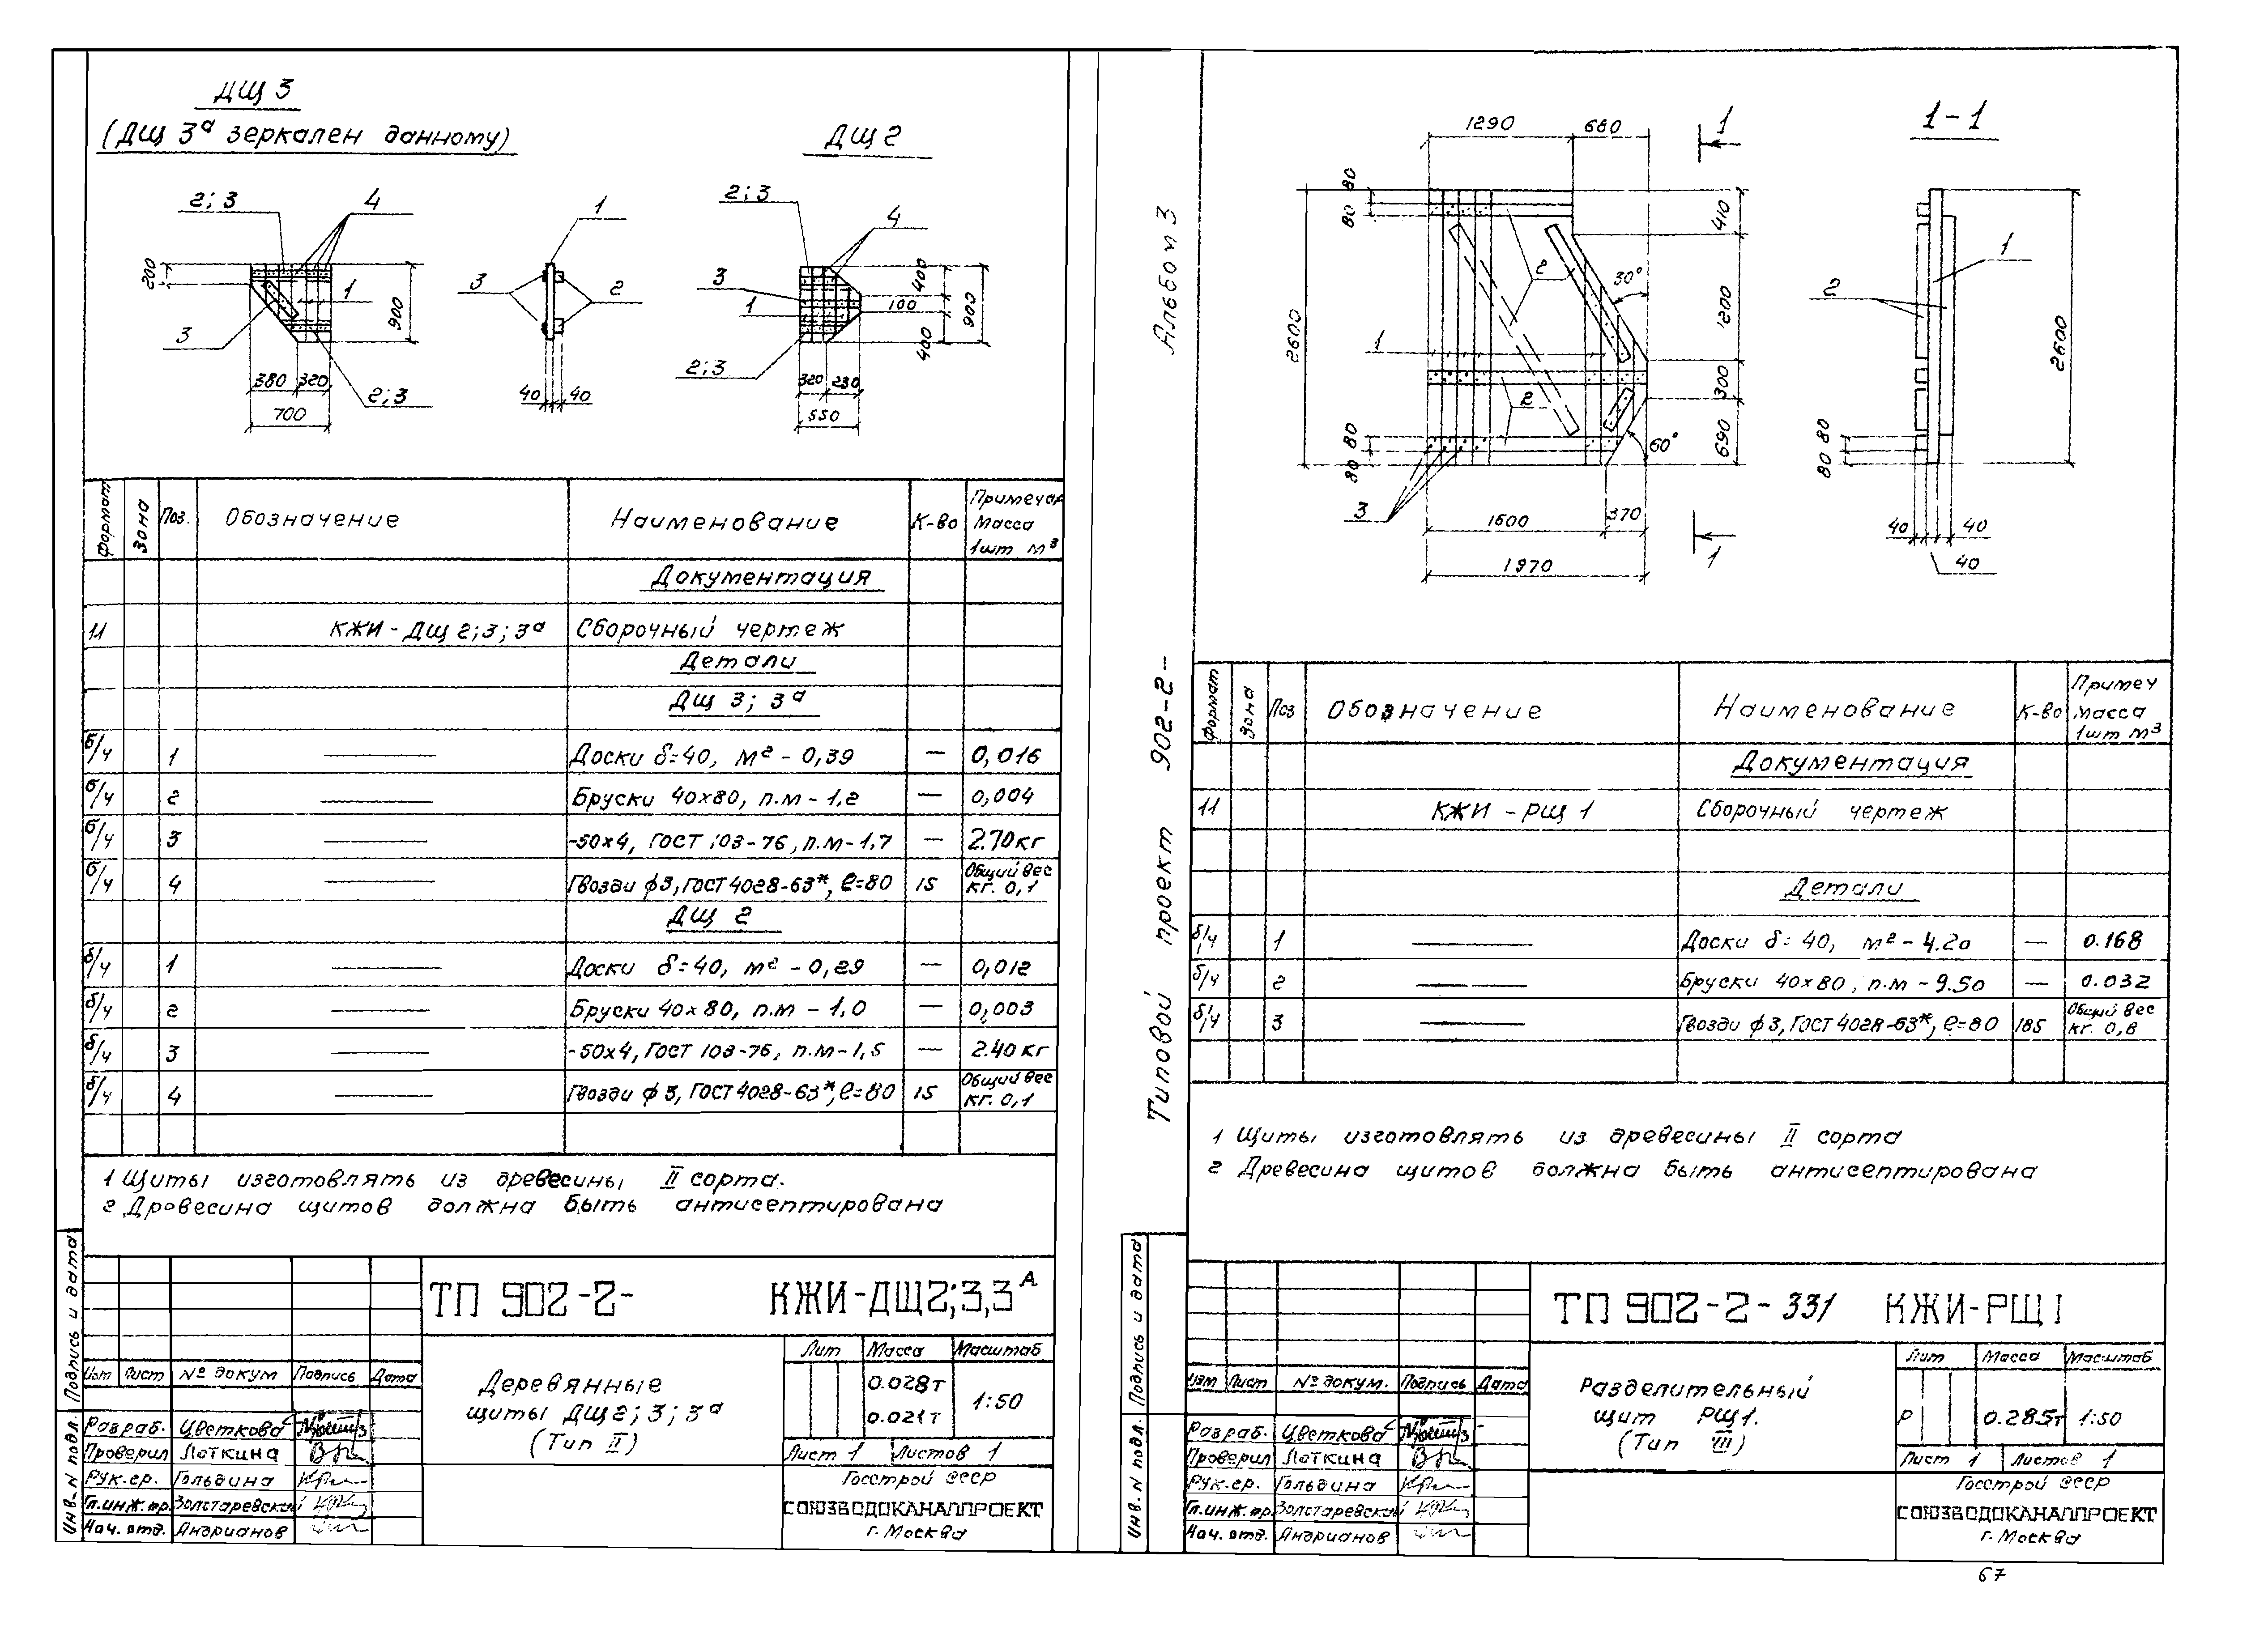 ДЩ 3
(ДЩ 3а зеркален данному)
ДЩ 2
2; 3
4
1
200
900
3
380 320
700
2; 3
1
3
2
40 40
2; 3
4
3
1
400
100
400
900
2; 3
320 230
550
Формат Зона Поз. Обозначение Наименование К-во Примечан Масса 1шт м³
Документация
11 КЖИ - ДЩ 2; 3; 3а Сборочный чертеж
Детали
ДЩ 3; 3а
б/ч 1 Доски δ=40, м² - 0,39 — 0,016
б/ч 2 Бруски 40х80, п.м - 1,2 — 0,004
б/ч 3 -50х4, ГОСТ 103-76, п.м-1,7 — 2.70кг
б/ч 4 Гвозди ф3, ГОСТ 4028-63*, ℓ=80 15 Общий вес кг. 0,1
ДЩ 2
б/ч 1 Доски δ=40, м² - 0,29 — 0,012
б/ч 2 Бруски 40х80, п.м - 1,0 — 0,003
б/ч 3 -50х4, ГОСТ 103-76, п.м-1,5 — 2.40 кг
б/ч 4 Гвозди ф3, ГОСТ 4028-63*, ℓ=80 15 Общий вес кг. 0,1
1 Щиты изготовлять из древесины II сорта.
2 Древесина щитов должна быть антисептирована
Подпись и дата
Инв. N подл.
ТП 902-2- КЖИ-ДЩ2;3,3А
Изм Лист № докум Подпись Дата
Разраб. Цветкова
Проверил Лоткина
Рук.гр. Гольдина
Гл.инж.пр. Золстаревский
Нач. отд. Андрианов
Деревянные
щиты ДЩ 2; 3; 3а
(Тип II)
Лит Масса Масштаб
0.028т
0.021т
1:50
Лист 1 Листов 1
Госстрой СССР
СОЮЗВОДОКАНАЛПРОЕКТ
г. Москва
Типовой проект 902-2- Альбом 3
1290 680
1
1-1
80
80
2600
410
1200
300
690
30°
60°
2
1
2
80
80
3
1600 370
1970
1
1
2
2600
80 80
40 40
40
Формат Зона Поз Обозначение Наименование К-во Примеч Масса 1шт м³
Документация
11 КЖИ - РЩ 1 Сборочный чертеж
Детали
б/ч 1 Доски δ=40, м² - 4.20 — 0.168
б/ч 2 Бруски 40х80, п.м - 9.50 — 0.032
б/ч 3 Гвозди ф3, ГОСТ 4028-63*, ℓ=80 185 Общий вес кг. 0,8
1 Щиты изготовлять из древесины II сорта
2 Древесина щитов должна быть антисептирована
Подпись и дата
Инв. N подл.
ТП 902-2-331 КЖИ-РЩ1
Изм Лист № докум. Подпись Дата
Разраб. Цветкова
Проверил Лоткина
Рук.гр. Гольдина
Гл.инж.пр. Золстаревский
Нач. отд. Андрианов
Разделительный
щит РЩ1.
(Тип III)
Лит Масса Масштаб
Р 0.285т 1:50
Лист 1 Листов 1
Госстрой СССР
СОЮЗВОДОКАНАЛПРОЕКТ
г. Москва
67